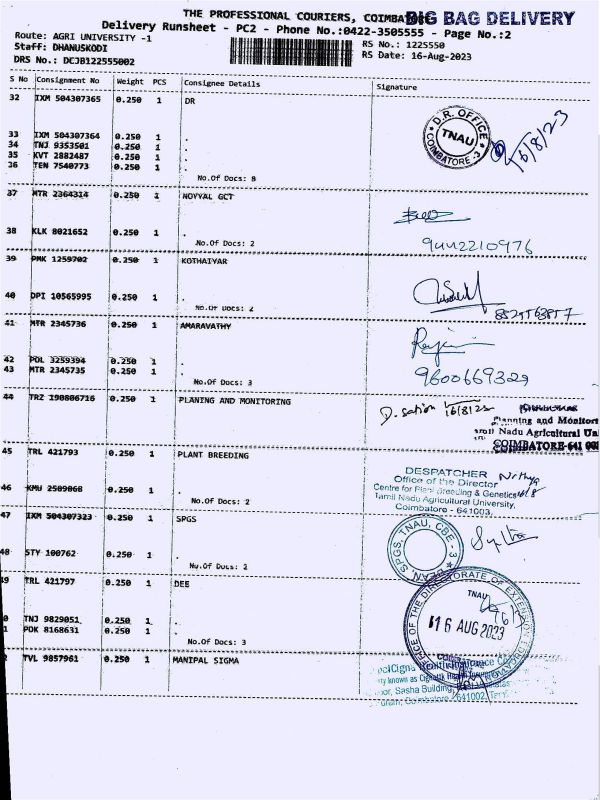 THE PROFESSIONAL COURIERS, COIMBA BIG BAG DELIVERY
Delivery Runsheet - PC2 - Phone No.:0422-3505555 - Page No.:2
Route: AGRI UNIVERSITY -1
RS No.: 1225550
Staff: DHANUSKODI
RS Date: 16-Aug-2023
DRS No.: DCJB122555002
S No Consignment No Weight PCS Consignee Details Signature
32 IXM 504307365 0.250 1 DR
D.R. OFFICE TNAU COIMBATORE-3
16/8/23
33 IXM 504307364 0.250 1 .
34 TNJ 9353501 0.250 1 .
35 KVT 2882487 0.250 1 .
36 TEN 7540773 0.250 1 .
No.Of Docs: 8
37 MTR 2364314 0.250 1 NOYYAL GCT
38 KLK 8021652 0.250 1 .
9442210976
No.Of Docs: 2
39 PMK 1259702 0.250 1 KOTHAIYAR
40 DPI 10565995 0.250 1 .
No.Of Docs: 2
41 MTR 2345736 0.250 1 AMARAVATHY
42 POL 3259394 0.250 1 .
43 MTR 2345735 0.250 1 .
9600669329
No.Of Docs: 3
44 TRZ 190806716 0.250 1 PLANING AND MONITORING
16/8/23
Planning and Monitori
Nadu Agricultural Un
COIMBATORE-641 003
45 TRL 421793 0.250 1 PLANT BREEDING
DESPATCHER Nithya
Office of the Director
Centre for Plant Breeding & Genetics
16/8
Tamil Nadu Agricultural University,
Coimbatore - 641003.
46 KMU 2509068 0.250 1 .
No.Of Docs: 2
47 IXM 504307323 0.250 1 SPGS
DEAN, SPGS, TNAU, CBE - 3
48 STY 100762 0.250 1 .
No.Of Docs: 2
49 TRL 421797 0.250 1 DEE
OFFICE OF THE DIRECTORATE OF EXTENSION EDUCATION
TNAU
16 AUG 2023
0 TNJ 9829051 0.250 1 .
1 PDK 8168631 0.250 1 .
No.Of Docs: 3
2 TVL 9857961 0.250 1 MANIPAL SIGMA
ny known as Cigna
oor, Sasha Building,
641002